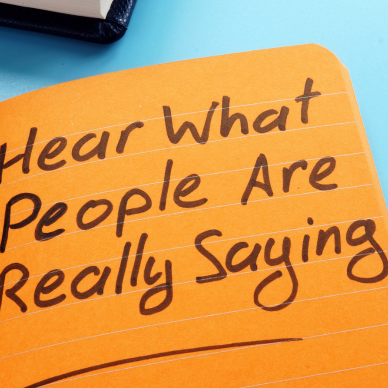 Hear What
People Are
Really Saying